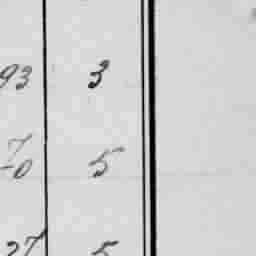 93 3
70 5
27 5